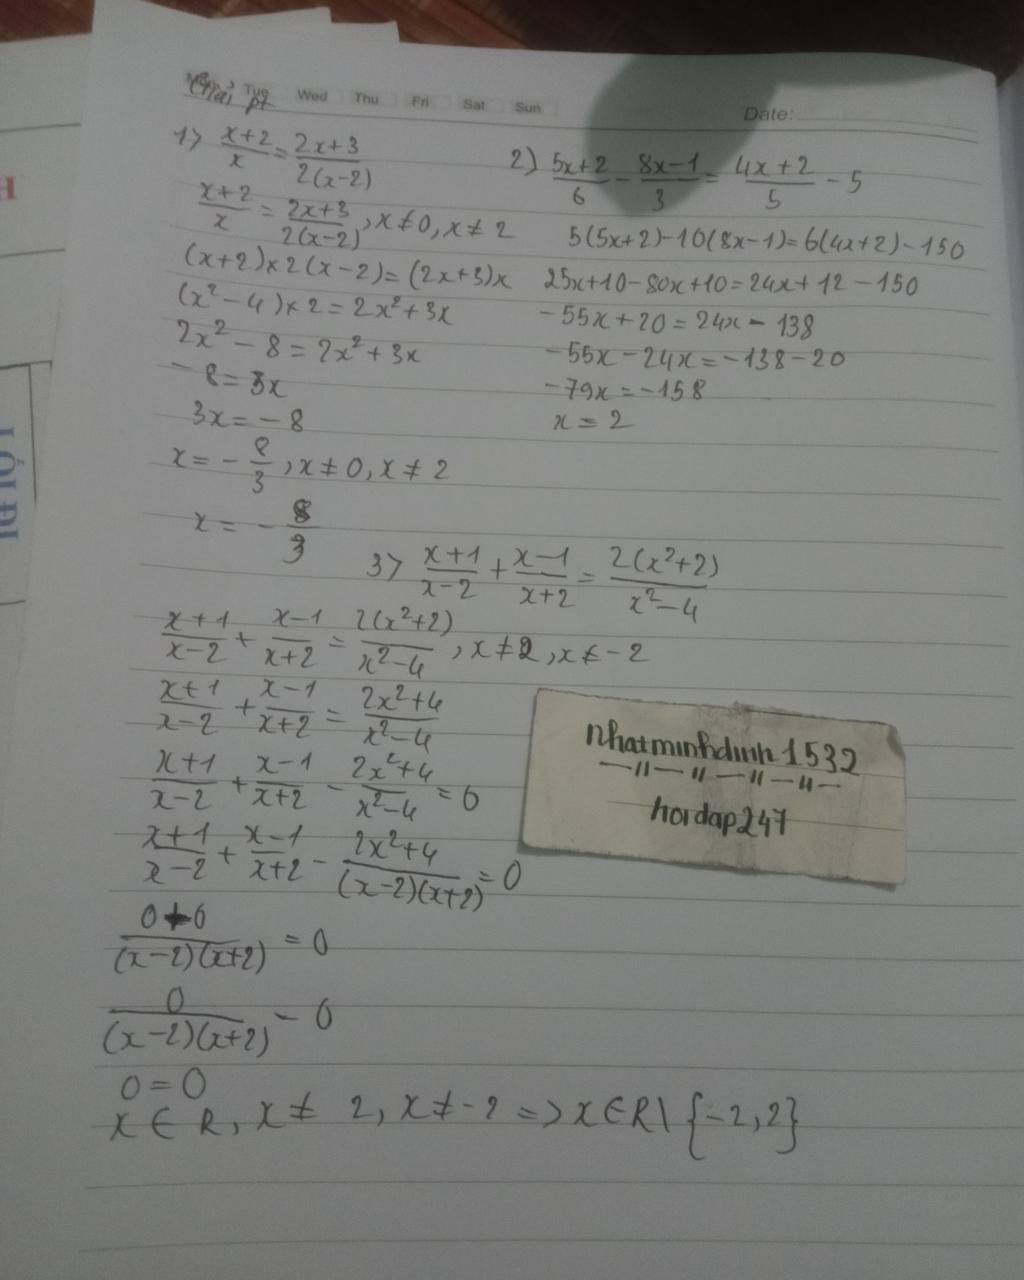 Giải pt
Tue Wed Thu Fri Sat Sun
Date:
1> x+2/x = 2x+3/2(x-2)
x+2/x = 2x+3/2(x-2), x≠0, x≠2
(x+2)×2(x-2)=(2x+3)x
(x²-4)×2=2x²+3x
2x²-8=2x²+3x
-8=3x
3x=-8
x=-8/3, x≠0, x≠2
x=-8/3
2) 5x+2/6 - 8x-1/3 = 4x+2/5 - 5
5(5x+2)-10(8x-1)=6(4x+2)-150
25x+10-80x+10=24x+12-150
-55x+20=24x-138
-55x-24x=-138-20
-79x=-158
x=2
3> x+1/x-2 + x-1/x+2 = 2(x²+2)/x²-4
x+1/x-2 + x-1/x+2 = 2(x²+2)/x²-4, x≠2, x≠-2
x+1/x-2 + x-1/x+2 = 2x²+4/x²-4
x+1/x-2 + x-1/x+2 - 2x²+4/x²-4 = 0
x+1/x-2 + x-1/x+2 - 2x²+4/(x-2)(x+2) = 0
0+0/(x-2)(x+2) = 0
0/(x-2)(x+2) = 0
0=0
x∈R, x≠2, x≠-2 => x∈R\{-2,2}
nhatminhdinh1532
hoidap247
H
LỜI ĐI